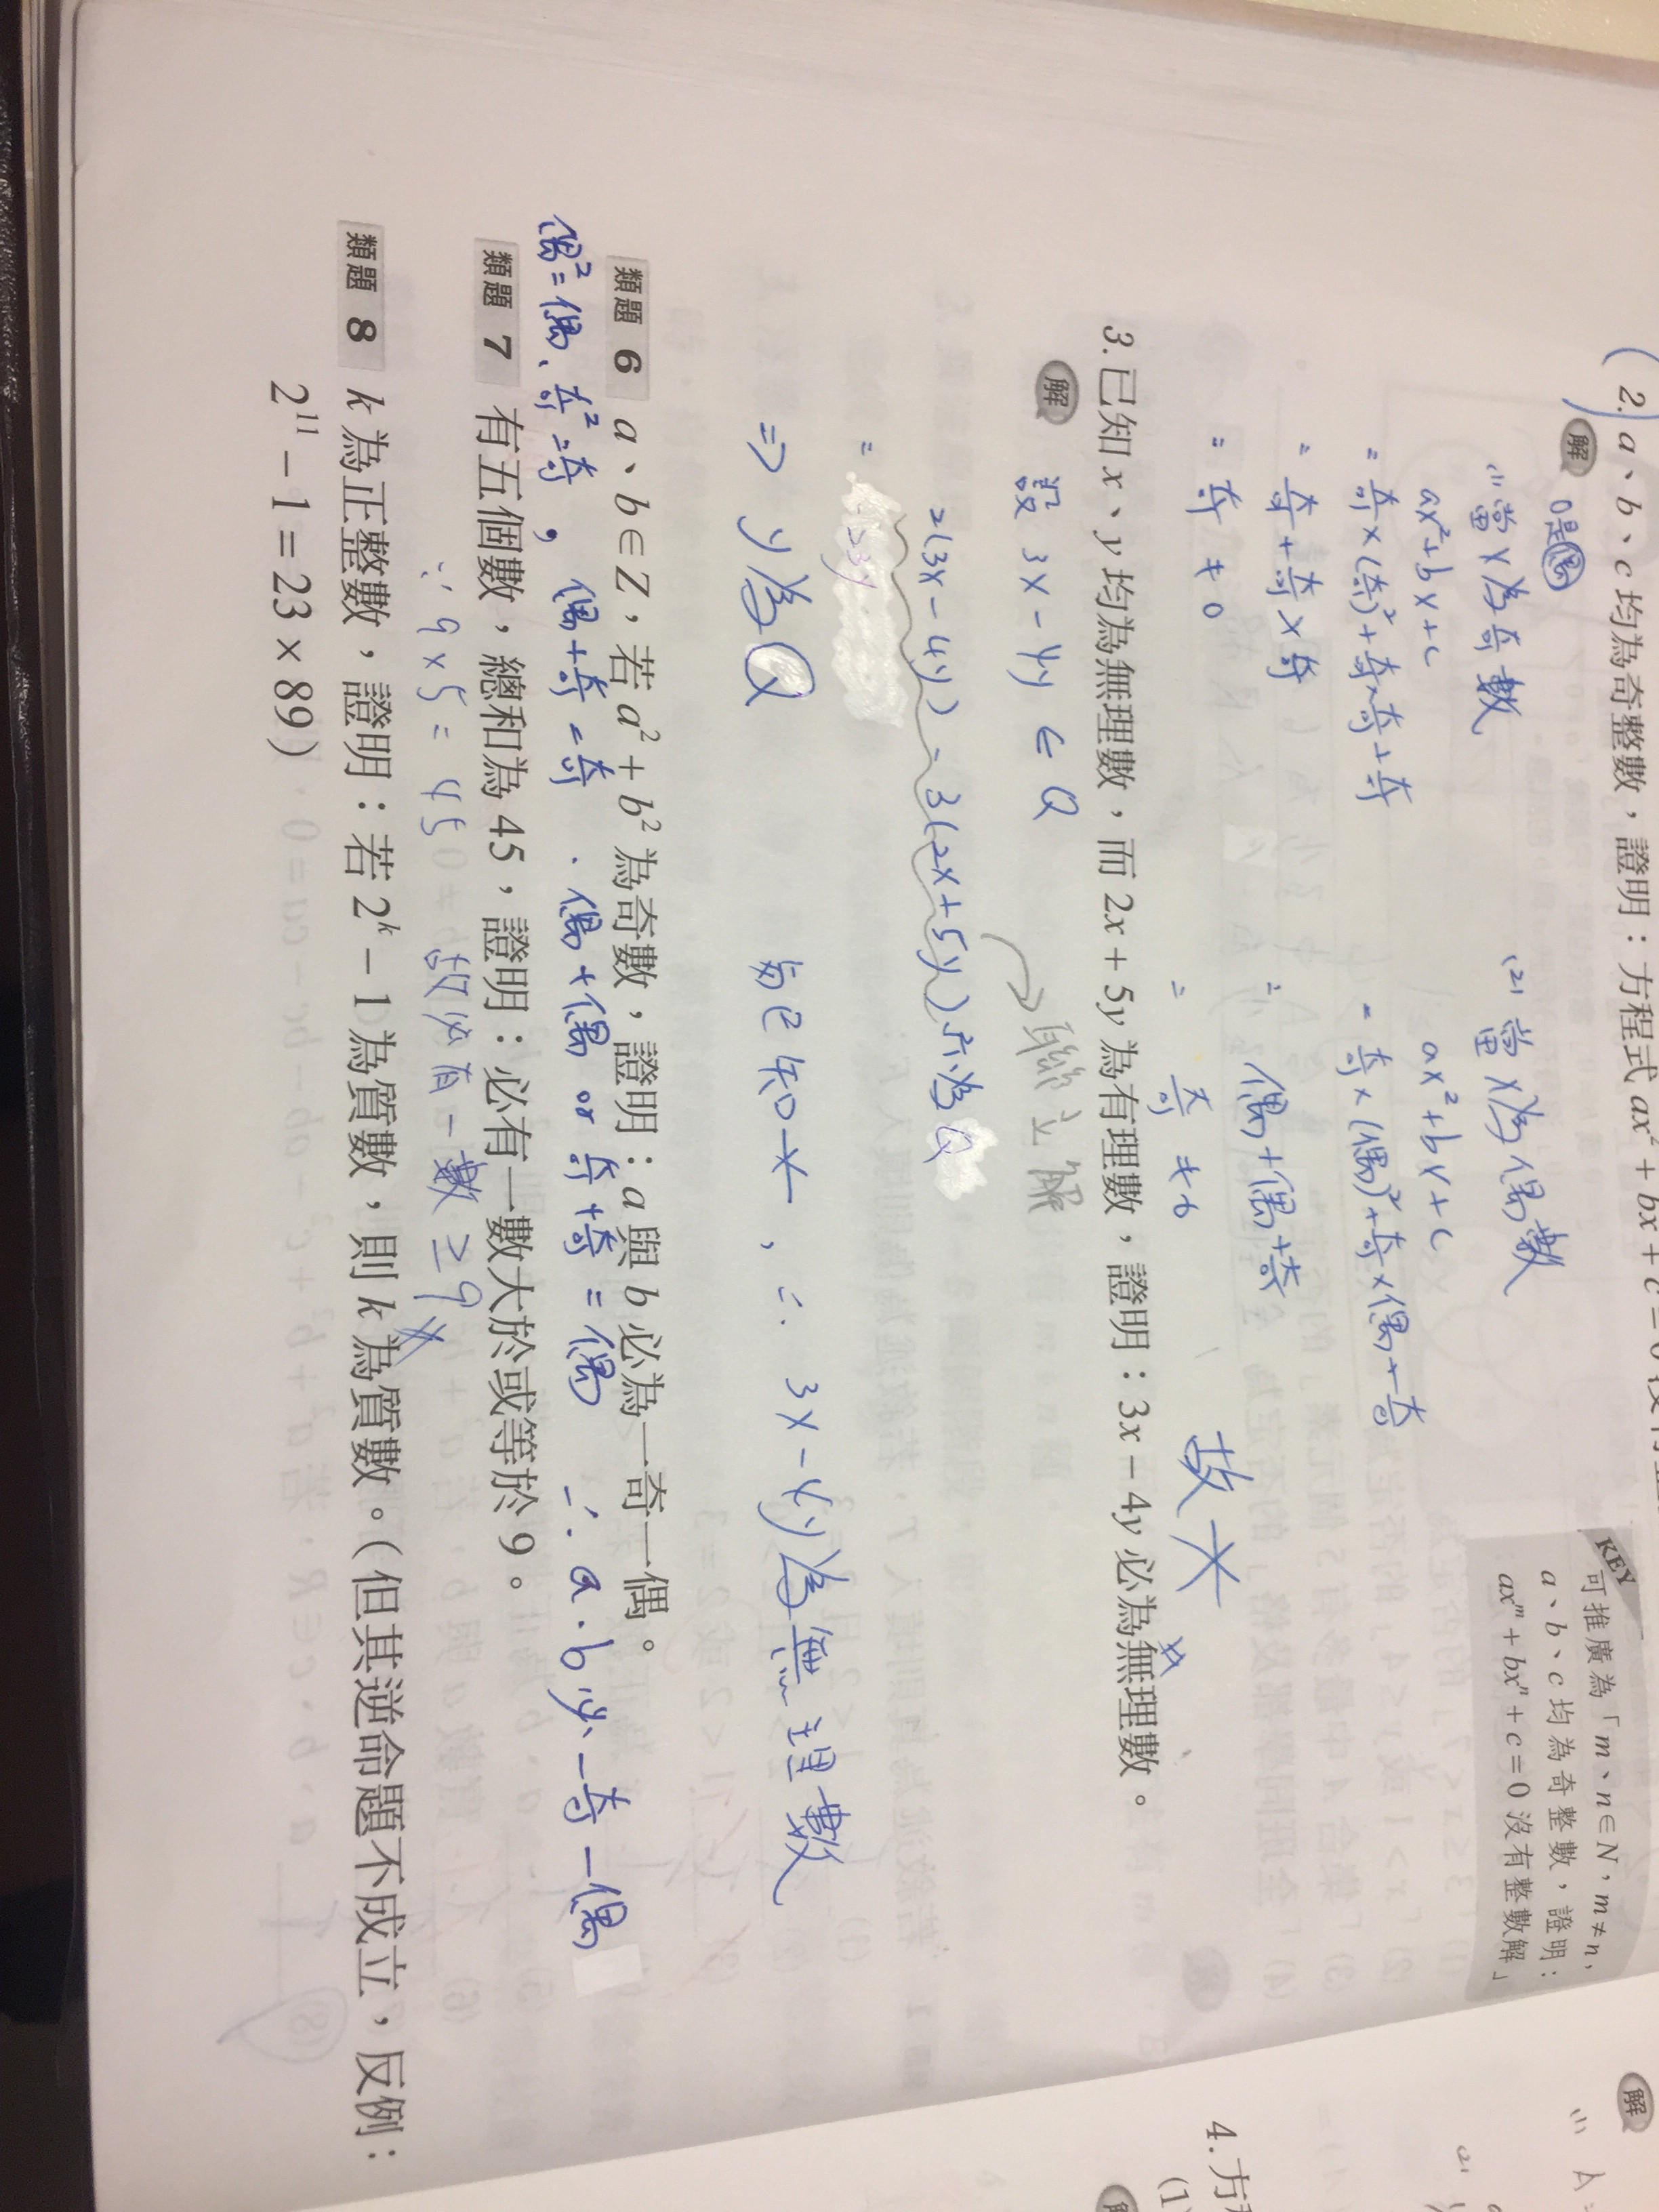 (2.) a、b、c 均為奇整數，證明：方程式 ax² + bx + c = 0
解 0是偶
(1) 當 x 為奇數
ax² + bx + c
= 奇×(奇)² + 奇×奇 + 奇
= 奇 + 奇 × 奇
= 奇 ≠ 0
(2) 當 x 為偶數
ax² + bx + c
= 奇×(偶)² + 奇×偶 + 奇
= 偶 + 偶 + 奇
= 奇 ≠ 0
故
KEY
可推廣為「m、n∈N，m ≠ n，
a、b、c 均為奇整數，證明：
axᵐ + bxⁿ + c = 0 沒有整數解」
3. 已知 x、y 均為無理數，而 2x + 5y 為有理數，證明：3x − 4y 必為無理數。
解 設 3x − 4y ∈ Q
聯立解
2(3x − 4y) − 3(2x + 5y) 亦為 Q
= -23y
⇒ y 為 Q 與已知 ，∴ 3x − 4y 為無理數
類題 6 a、b∈Z，若 a² + b² 為奇數，證明：a 與 b 必為一奇一偶。
偶² = 偶、奇² = 奇，偶 + 奇 = 奇、偶 + 偶 or 奇 + 奇 = 偶 ∴ a、b 必一奇一偶
類題 7 有五個數，總和為 45，證明：必有一數大於或等於 9。
∵ 9 × 5 = 45 故必有一數 ≥ 9
類題 8 k 為正整數，證明：若 2ᵏ − 1 為質數，則 k 為質數。（但其逆命題不成立，反例：
2¹¹ − 1 = 23 × 89）
4. 方
(1)
解
(1)
(2)
解